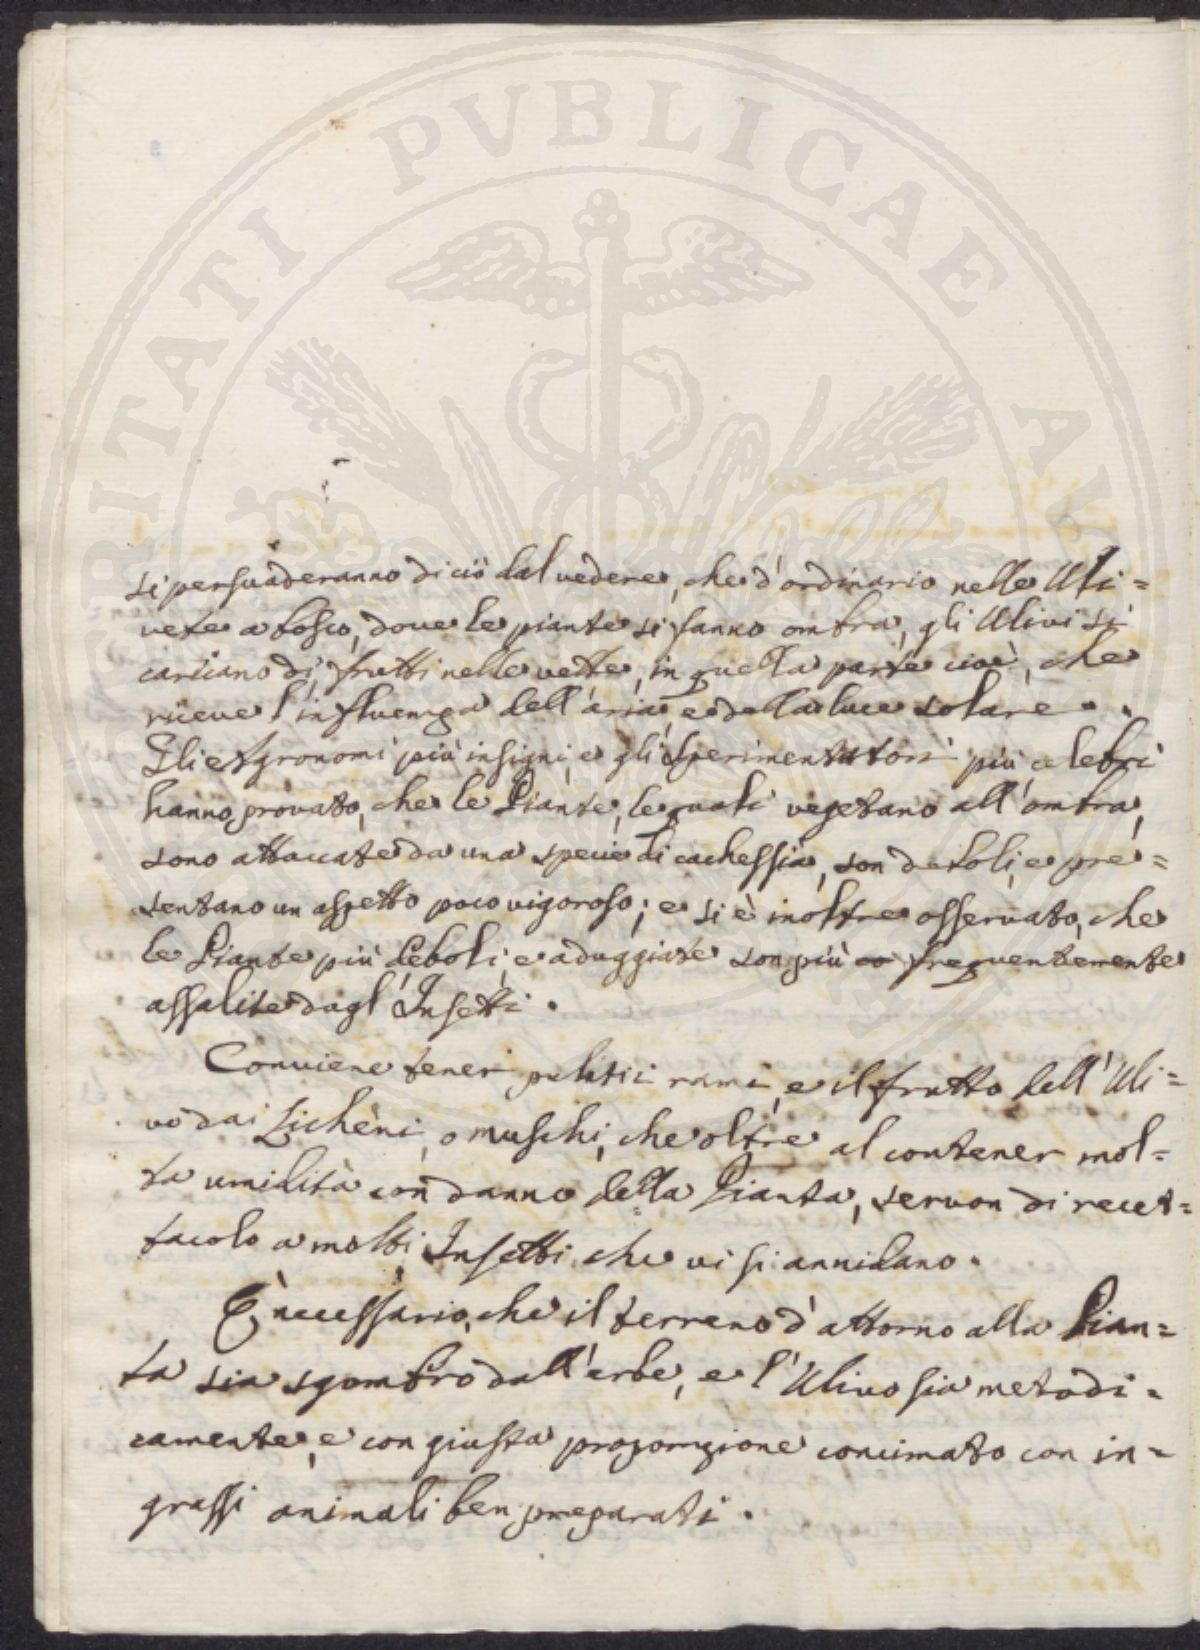 PROSPERITATI PUBLICAE AU
si persuaderanno di ciò dal vedere, che d'ordinario nelle Uli=
vete a bosco, dove le piante si fanno ombra, gli Ulivi si
caricano di frutti nelle vette, in quella parte cioè, che
riceve l'influenza dell'aria, e della luce solare..
Gli Agronomi più insigni, e gli Sperimentatori più celebri
hanno provato, che le Piante, le quali vegetano all'ombra,
sono attaccate da una specie di cachessia, son deboli, e pre=
sentano un aspetto poco vigoroso; e si è inoltre osservato, che
le Piante più deboli, e aduggiate son più frequentemente
assalite dagl'Insetti.
Conviene tener puliti i rami, e il frutto dell'Uli=
vo dai Lichèni, o muschi, che oltre al contener mol=
ta umidità con danno della Pianta, servon di recet=
tacolo a molti Insetti che vi si annidano.
È necessario, che il terreno d'attorno alla Pian=
ta sia sgombro dall'erbe, e l'Ulivo sia metodi=
camente, e con giusta proporzione concimato con in=
grassi animali ben preparati.